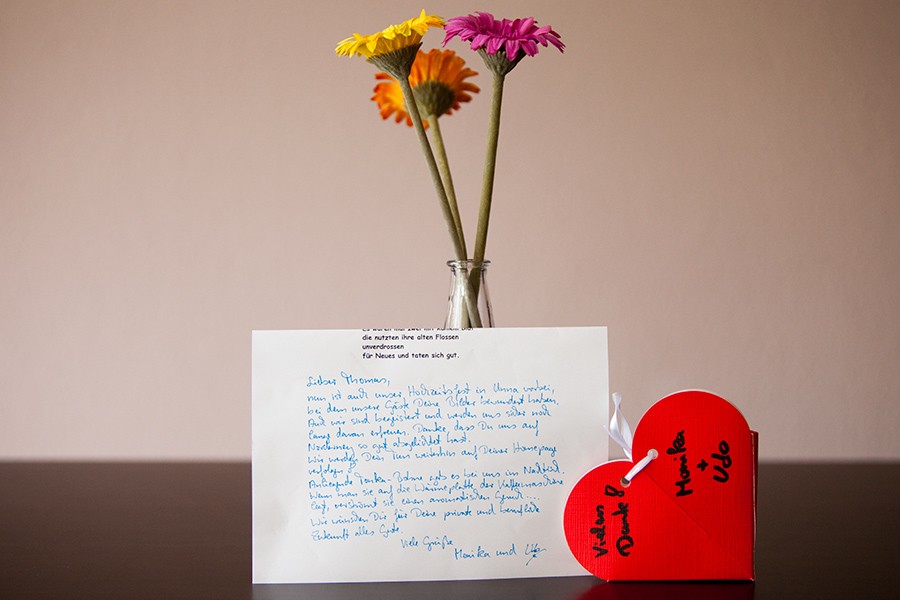 die nutzten ihre alten Flossen
unverdrossen
für Neues und taten sich gut.
Lieber Thomas,
nun ist auch unser Hochzeitsfest in Unna vorbei,
bei dem unsere Gäste Deine Bilder bewundert haben.
Auch wir sind begeistert und werden uns sicher noch
lang daran erfreuen. Danke, dass Du uns auf
Norderney so gut abgelichtet hast.
Wir werden Dein Tun weiterhin auf Deiner Homepage
verfolgen
Anliegende Tonka-Bohne gab es bei uns im Nachtisch.
Wenn man sie auf die Wärmeplatte der Kaffeemaschine
legt, verströmt sie einen aromatischen Geruch ...
Wir wünschen Dir für Deine private und berufliche
Zukunft alles Gute.
Viele Grüße
Monika und Udo
Vielen
Dank
Monika
+
Udo